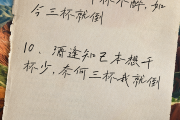 千杯不醉，如
今三杯就倒
10、酒逢知己本想千
杯少，奈何三杯我就倒